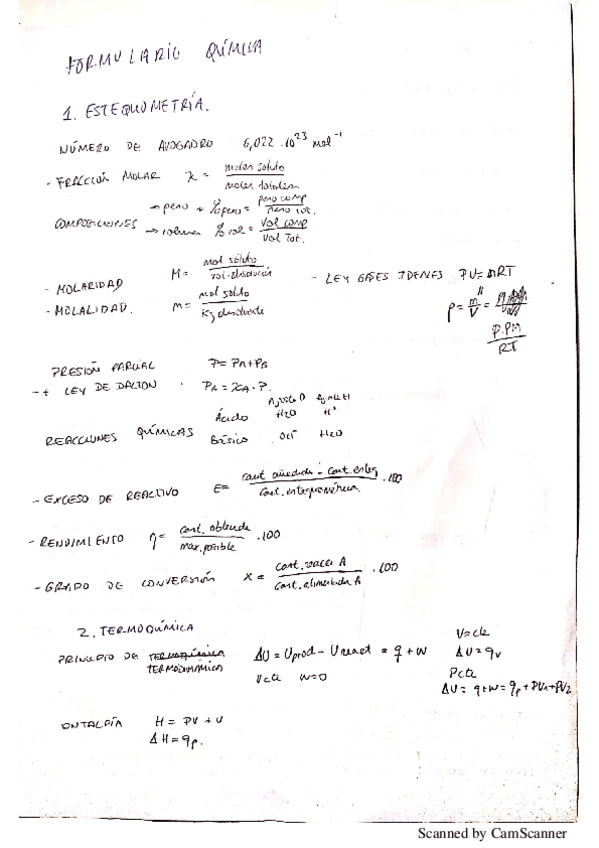 FORMULARIO QUÍMICA
1. ESTEQUIOMETRÍA.
NÚMERO DE AVOGADRO 6,022 · 10^23 mol^-1
- FRACCIÓN MOLAR X = moles soluto / moles totales
COMPOSICIONES → peso → % peso = peso comp / peso tot.
→ volumen % vol = Vol comp / Vol Tot.
- MOLARIDAD M = mol soluto / vol. disolución
- LEY GASES IDEALES PV = nRT
- MOLALIDAD. m = mol soluto / Kg disolvente
ρ = m / V =
P. PM / RT
PRESIÓN PARCIAL P = PA + PB
→ LEY DE DALTON · PA = XA · P.
Ajuste O Ajuste H
REACCIONES QUÍMICAS Ácido H2O H+
Básico OH- H2O
- EXCESO DE REACTIVO E = cant añadida - cant. esteq / cant. estequiométrica · 100
- RENDIMIENTO η = cant. obtenida / max. posible · 100
- GRADO DE CONVERSIÓN X = cant. reacc A / cant. alimentada A · 100
2. TERMOQUÍMICA
PRINCIPIO DE TERMOQUÍMICA ΔU = Uprod - Ureact = q + w
TERMODINÁMICA
V cte w = 0
V = cte
ΔU = qv
P cte
ΔU = q + w = qp + PV1 + PV2
ENTALPÍA H = PV + U
ΔH = qp.
Scanned by CamScanner